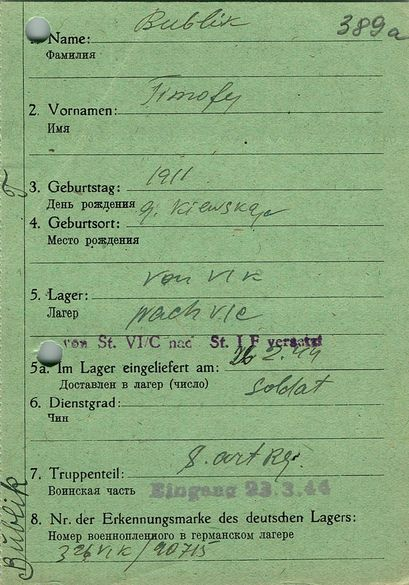 Bublik
389a
1. Name:
Фамилия
Timofej
2. Vornamen:
Имя
1911
3. Geburtstag:
День рождения
g. Kiewskaja
4. Geburtsort:
Место рождения
von VI K
5. Lager:
Лагер
nach VI C
von St. VI/C nach St. I F versetzt
26.2.44
5a. Im Lager eingeliefert am:
Доставлен в лагер (число)
Soldat
6. Dienstgrad:
Чин
8. art Reg.
7. Truppenteil:
Воинская часть
Eingang 23.3.44
8. Nr. der Erkennungsmarke des deutschen Lagers:
Номер военнопленного в германском лагере
326 VI K / 90715
Bublik T